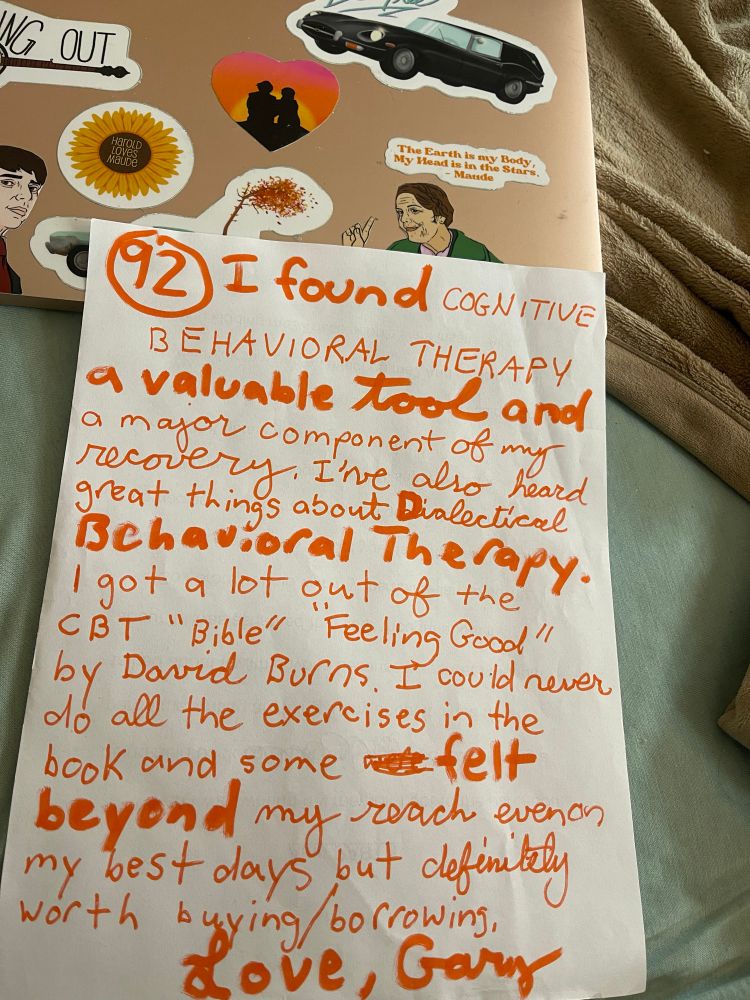 NG OUT
HAROLD
LOVES
MAUDE
The Earth is my Body,
My Head is in the Stars.
- Maude
92 I found COGNITIVE
BEHAVIORAL THERAPY
a valuable tool and
a major component of my
recovery. I've also heard
great things about Dialectical
Behavioral Therapy.
I got a lot out of the
CBT "Bible" "Feeling Good"
by David Burns. I could never
do all the exercises in the
book and some felt
beyond my reach even on
my best days but definitely
worth buying/borrowing.
Love, Gary